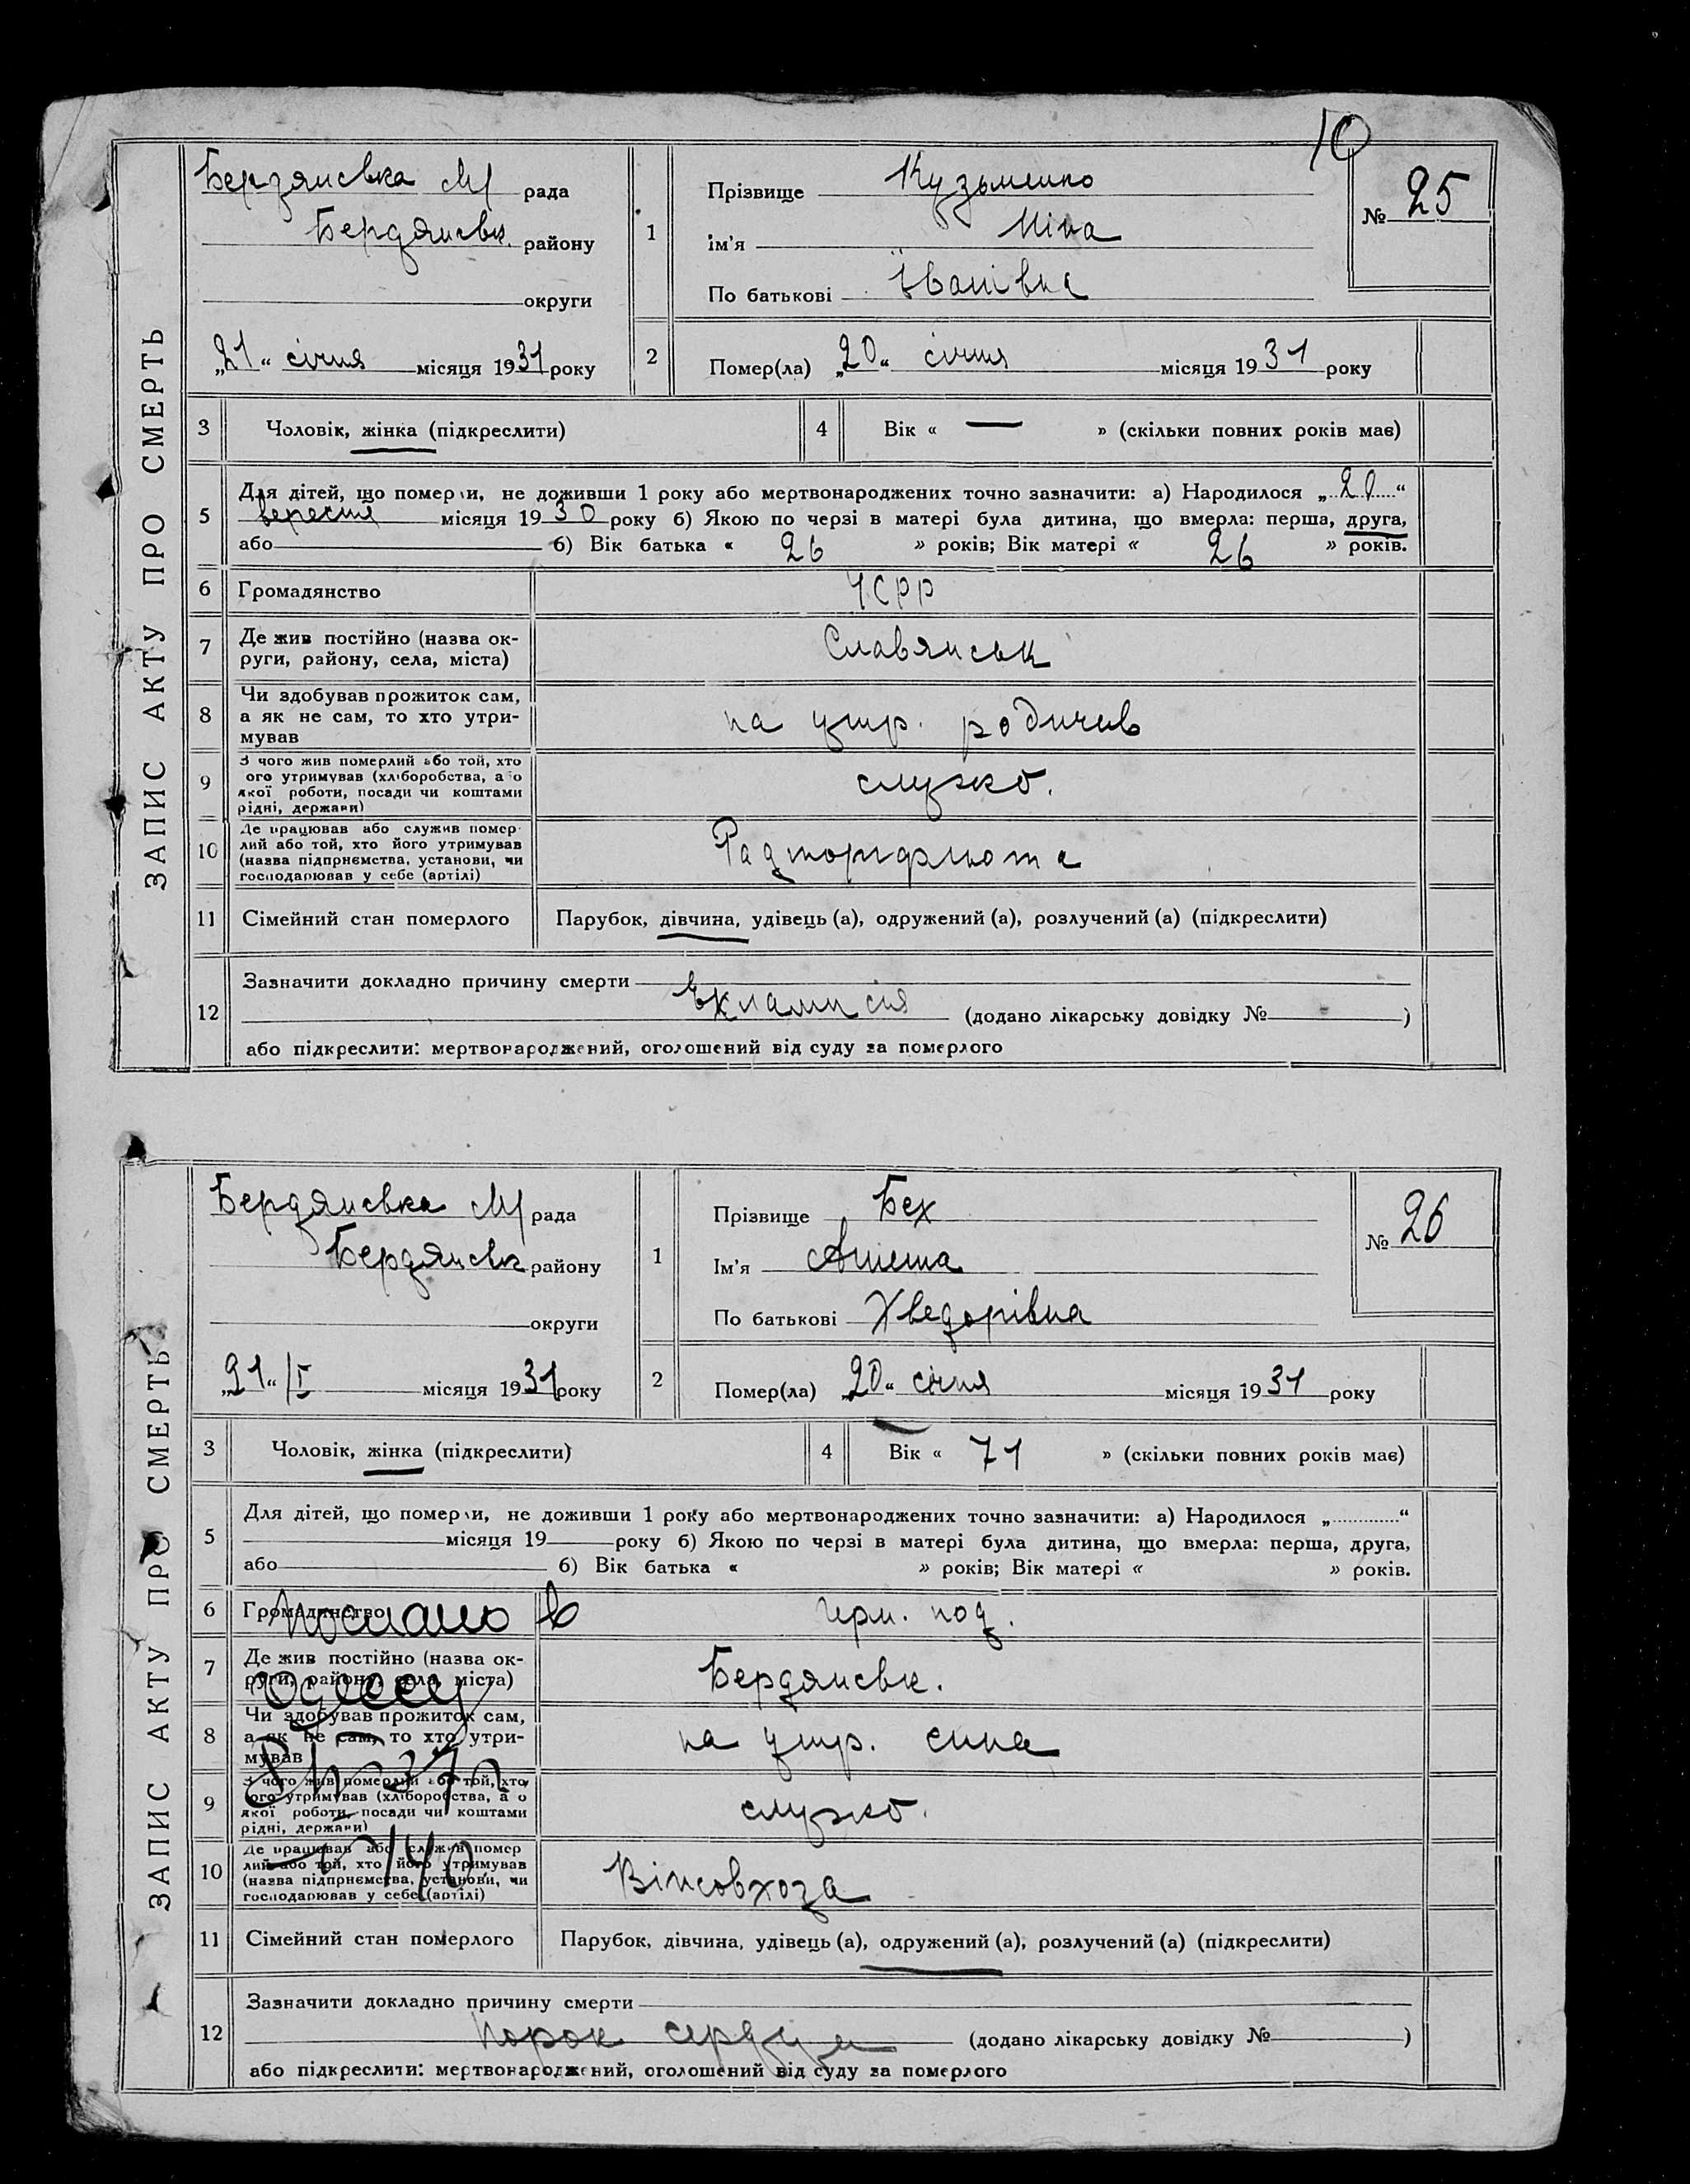 10
ЗАПИС АКТУ ПРО СМЕРТЬ
Бердянська М/ рада
Бердянськ. району
округи
„21“ січня місяця 1931 року
1
Прізвище Кузьменко
ім'я Ніна
По батькові Іванівна
№ 25
2
Помер(ла) „20“ січня місяця 1931 року
3 Чоловік, жінка (підкреслити)
4 Вік « — » (скільки повних років має)
5 Для дітей, що померли, не доживши 1 року або мертвонароджених точно зазначити: а) Народилося „20“
вересня місяця 1930 року б) Якою по черзі в матері була дитина, що вмерла: перша, друга,
або б) Вік батька « 26 » років; Вік матері « 26 » років.
6 Громадянство УСРР
7 Де жив постійно (назва ок-
руги, району, села, міста) Славянськ
8 Чи здобував прожиток сам,
а як не сам, то хто утри-
мував на утр. родичів
9 З чого жив померлий або той, хто
ого утримував (хліборобства, а о
якої роботи, посади чи коштами
рідні, держави) служб.
10 Де працював або служив помер
лий або той, хто його утримував
(назва підприємства, установи, чи
господарював у себе (артілі) Радторгфлота
11 Сімейний стан померлого Парубок, дівчина, удівець (а), одружений (а), розлучений (а) (підкреслити)
12 Зазначити докладно причину смерти
Еклампсія (додано лікарську довідку № - )
або підкреслити: мертвонароджений, оголошений від суду за померлого
ЗАПИС АКТУ ПРО СМЕРТЬ
Бердянська М/ рада
Бердянськ району
округи
„21“ /I місяця 1931 року
1
Прізвище Бех
Ім'я
По батькові Хведорівна
№ 26
2
Помер(ла) „20“ січня місяця 1931 року
3 Чоловік, жінка (підкреслити)
4 Вік « 71 » (скільки повних років має)
5 Для дітей, що померли, не доживши 1 року або мертвонароджених точно зазначити: а) Народилося „ “
місяця 19 року б) Якою по черзі в матері була дитина, що вмерла: перша, друга,
або б) Вік батька « » років; Вік матері « » років.
6 Громадянство герм. под.
послано в
7 Де жив постійно (назва ок-
руги, району, села, міста) Бердянськ.
Одессу
8 Чи здобував прожиток сам,
а як не сам, то хто утри-
мував на утр. сина
9 З чого жив померлий або той, хто
ого утримував (хліборобства, а о
якої роботи, посади чи коштами
рідні, держави) служб.
10 Де працював або служив помер
лий або той, хто його утримував
(назва підприємства, установи, чи
господарював у себе (артілі)
11 Сімейний стан померлого Парубок, дівчина, удівець (а), одружений (а), розлучений (а) (підкреслити)
12 Зазначити докладно причину смерти
порок сердця (додано лікарську довідку № )
або підкреслити: мертвонароджений, оголошений від суду за померлого